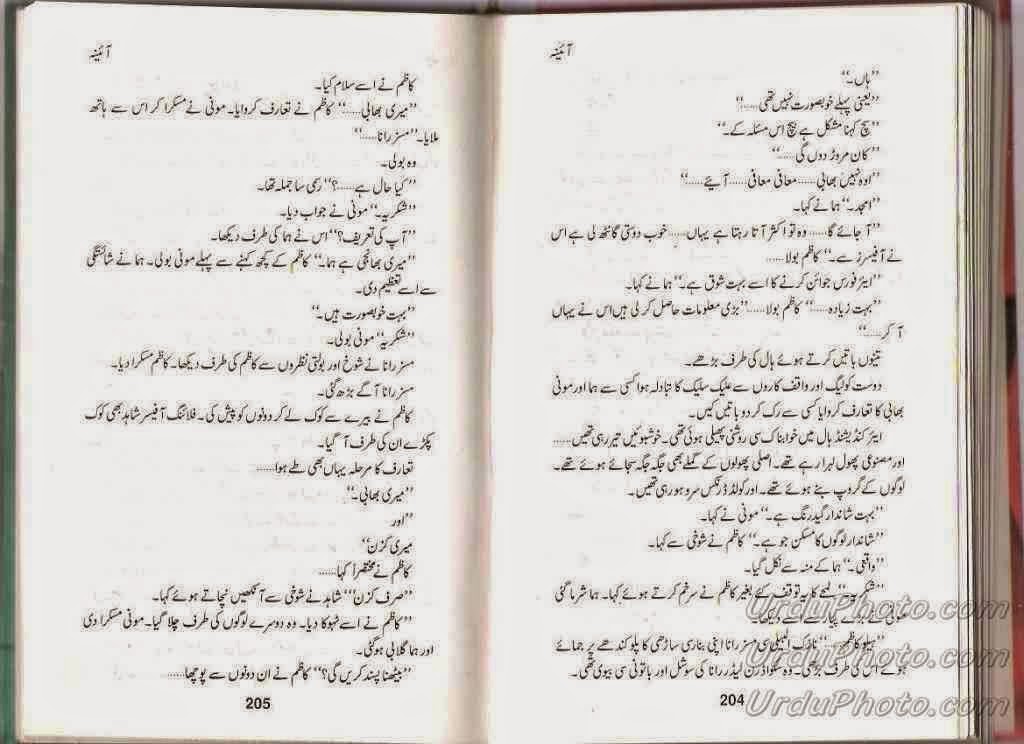 آئینہ
"ہاں۔"
"یعنی پہلے خوبصورت نہیں تھی....."
"سچ کہنا مشکل ہے بیچ اس مسئلہ کے۔"
"کان مروڑ دوں گی....."
"اوہ نہیں بھابی..... معافی معافی..... آیئے....."
"امجد۔" ہما نے کہا۔
"آ جائے گا..... وہ تو اکثر آتا رہتا ہے یہاں..... خوب دوستی گانٹھ لی ہے اس
نے آفیسرز سے۔" کاظم بولا.....
"ایئر فورس جوائن کرنے کا اسے بہت شوق ہے۔" ہما نے کہا۔
"بہت زیادہ....." کاظم بولا..... "بڑی معلومات حاصل کر لی ہیں اس نے یہاں
آ کر....."
تینوں باتیں کرتے ہوئے ہال کی طرف بڑھے۔
دوست کولیگ اور واقف کاروں سے علیک سلیک کا تبادلہ ہوا کسی سے ہما اور مونی
بھابی کا تعارف کروایا کسی سے رک کر دو باتیں کیں۔
ایئر کنڈیشنڈ ہال میں خوابناک سی روشنی پھیلی ہوئی تھی۔ خوشبوئیں تیر رہی تھیں.....
اور مصنوعی پھول لہرا رہے تھے۔ اصلی پھولوں کے گملے بھی جگہ جگہ سجائے ہوئے تھے۔
لوگوں کے گروپ بنے ہوئے تھے۔ اور کولڈ ڈرنکس سرو ہو رہی تھیں۔
"بہت شاندار گیدرنگ ہے۔" مونی نے کہا۔
"شاندار لوگوں کا مسکن جو ہے۔" کاظم نے شوخی سے کہا۔
"واقعی۔" ہما کے منہ سے نکل گیا۔
"شکریہ" لمحے کا بھی توقف کئے بغیر کاظم نے سرخم کرتے ہوئے کہا۔ ہما شرما گئی
سے اسے دیکھا۔
"ہیلو کاظم....." نازک البیلی سی مسز رانا اپنی بنارسی ساڑھی کا پلو کندھے پر جمائے
ہوئے اس کی طرف بڑھی۔ وہ سکواڈرن لیڈر رانا کی سوشل اور باتونی سی بیوی تھی۔
204
آئینہ
کاظم نے اسے سلام کیا۔
"میری بھابی....." کاظم نے تعارف کروایا۔ مونی نے مسکرا کر اس سے ہاتھ
ملایا۔ "مسز رانا....."
وہ بولی۔
"کیا حال ہے.....؟" رسمی سا جملہ تھا۔
"شکریہ۔" مونی نے جواب دیا۔
"آپ کی تعریف؟" اس نے ہما کی طرف دیکھا۔
"میری بھانجی ہے ہما۔" کاظم کے کچھ کہنے سے پہلے مونی بولی۔ ہما نے شائستگی
سے اسے تعظیم دی۔
"بہت خوبصورت ہیں۔"
"شکریہ" مونی بولی۔
مسز رانا نے شوخ اور بولتی نظروں سے کاظم کی طرف دیکھا۔ کاظم مسکرا دیا۔
مسز رانا آگے بڑھ گئی۔
کاظم نے بیرے سے کوک لے کر دونوں کو پیش کی۔ فلائنگ آفیسر شاہد بھی کوک
پکڑے ان کی طرف آ گیا۔
تعارف کا مرحلہ یہاں بھی طے ہوا.....
"میری بھابی۔"
"اور
میری کزن"
کاظم نے مختصرا کہا.....
"صرف کزن" شاہد نے شوخی سے آنکھیں نچاتے ہوئے کہا۔
"کاظم نے اسے ٹہوکا دیا۔ وہ دوسرے لوگوں کی طرف چلا گیا۔ مونی مسکرا دی
اور ہما گلابی ہو گئی۔
"بیٹھنا پسند کریں گی؟" کاظم نے ان دونوں سے پوچھا.....
205
UrduPhoto.com
UrduPhoto.com
UrduPhoto.com